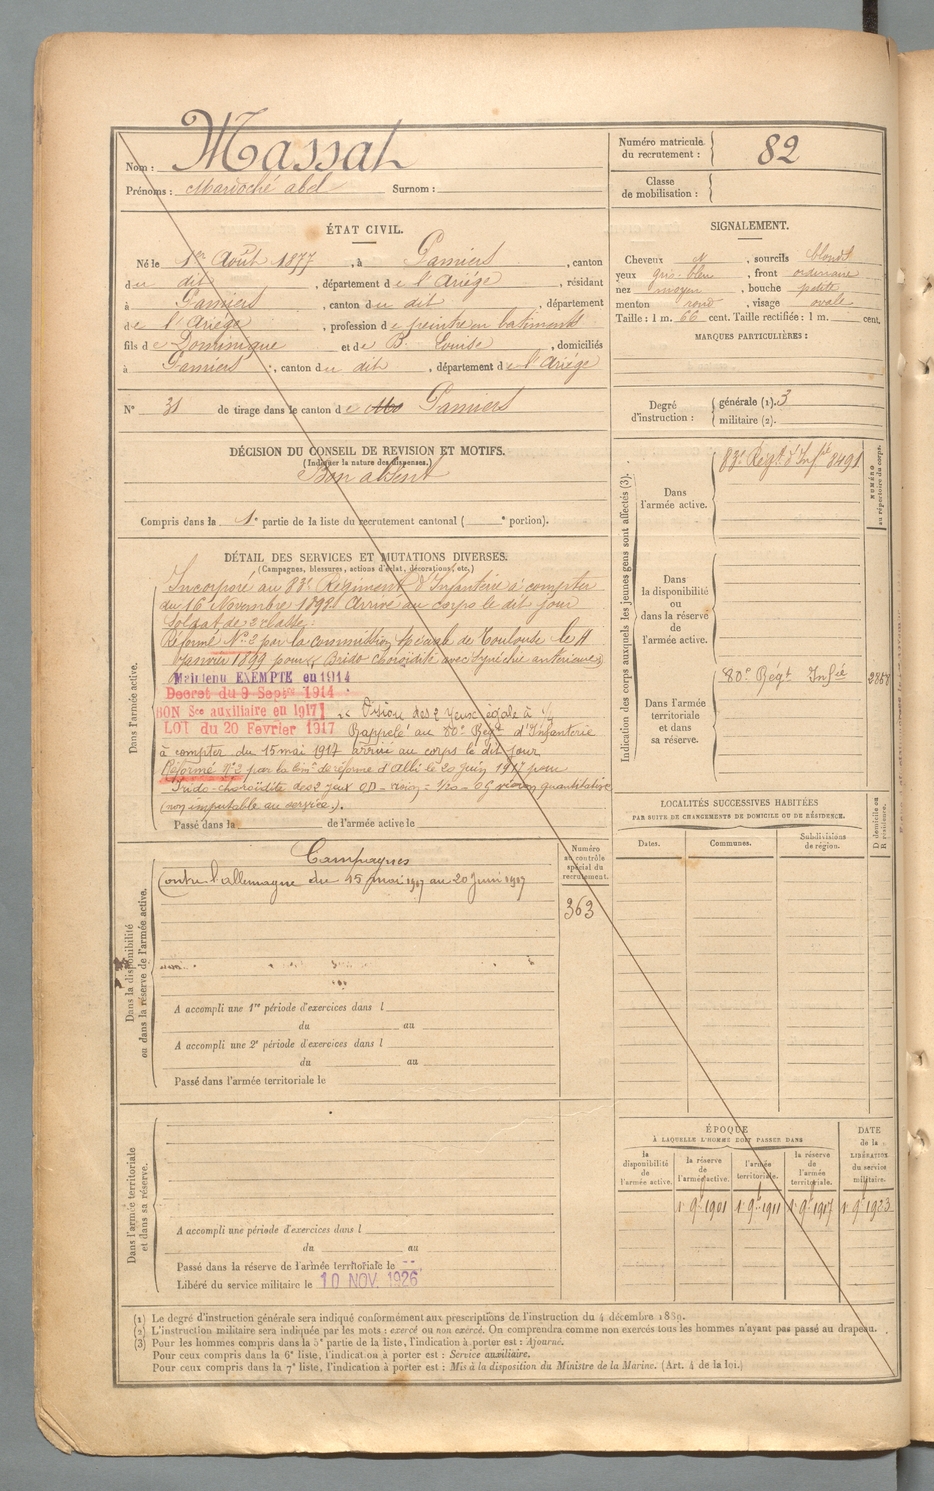 Nom : Massat
Prénoms : Mardoché abel Surnom :
Numéro matricule du recrutement : 82
Classe de mobilisation :
ÉTAT CIVIL.
Né le 1er Août 1877, à Pamiers, canton
du dit, département de l'Ariége, résidant
à Pamiers, canton du dit, département
de l'Ariége, profession de peintre en batiments
fils de Dominique et de B. Louise, domiciliés
à Pamiers, canton du dit, département de l'Ariége
N° 31 de tirage dans le canton de Pamiers
SIGNALEMENT.
Cheveux N, sourcils blonds
yeux gris-bleu, front ordinaire
nez moyen, bouche petite
menton rond, visage ovale
Taille : 1 m. 66 cent. Taille rectifiée : 1 m. cent.
MARQUES PARTICULIÈRES :
Degré d'instruction : générale (1). 3
militaire (2).
DÉCISION DU CONSEIL DE REVISION ET MOTIFS.
(Indiquer la nature des dispenses.)
Bon absent
Compris dans la 1e partie de la liste du recrutement cantonal ( e portion).
DÉTAIL DES SERVICES ET MUTATIONS DIVERSES.
(Campagnes, blessures, actions d'éclat, décorations, etc.)
Dans l'armée active.
Incorporé au 83e Régiment d'Infanterie à compter
du 16 Novembre 1898. Arrivé au corps le dit jour
Soldat de 2e classe.
Réformé N° 2 par la commission spéciale de Toulouse le 11
Janvier 1899 pour Irido choroïdite avec Synéchie antérieure
Maintenu EXEMPTE en 1914
Decret du 9 Sept 1914
BON Sce auxiliaire en 1917 Vision des 2 yeux égale à
LOI du 20 Fevrier 1917 Rappelé au 80e Régt d'Infanterie
à compter du 15 mai 1917 arrivé au corps le dit jour
Réformé N°2 par la Com° de réforme d'Albi le 20 Juin 1917 pour
Irido-choroïdite des 2 yeux OD - vision = 1/20 - OG vision quantitative
(non imputable au service).
Passé dans la de l'armée active le
Indication des corps auxquels les jeunes gens sont affectés (3).
NUMÉRO au répertoire du corps.
Dans l'armée active.
83e Régt d'Infie 8491
Dans la disponibilité ou dans la réserve de l'armée active.
Dans l'armée territoriale et dans sa réserve.
80e Régt Infie
LOCALITÉS SUCCESSIVES HABITÉES
PAR SUITE DE CHANGEMENTS DE DOMICILE OU DE RÉSIDENCE.
D domicile ou R résidence.
Dates. Communes. Subdivisions de région.
Dans la disponibilité ou dans la réserve de l'armée active.
Campagnes
Contre l'allemagne du 15 mai 1917 au 20 Juin 1917
Numéro au contrôle spécial du recrutement.
363
A accompli une 1re période d'exercices dans l
du au
A accompli une 2e période d'exercices dans l
du au
Passé dans l'armée territoriale le
Dans l'armée territoriale et dans sa réserve.
A accompli une période d'exercices dans l
du au
Passé dans la réserve de l'armée territoriale le
Libéré du service militaire le 10 NOV. 1926
ÉPOQUE
À LAQUELLE L'HOMME DOIT PASSER DANS
la disponibilité de l'armée active.
la réserve de l'armée active.
l'armée territoriale.
la réserve de l'armée territoriale.
DATE de la LIBÉRATION du service militaire.
1 9bre 1901 1 9bre 1911 1 9bre 1917 1 9bre 1923
(1) Le degré d'instruction générale sera indiqué conformément aux prescriptions de l'instruction du 4 décembre 1889.
(2) L'instruction militaire sera indiquée par les mots : exercé ou non exercé. On comprendra comme non exercés tous les hommes n'ayant pas passé au drapeau.
(3) Pour les hommes compris dans la 5e partie de la liste, l'indication à porter est : Ajourné.
Pour ceux compris dans la 6e liste, l'indication à porter est : Service auxiliaire.
Pour ceux compris dans la 7e liste, l'indication à porter est : Mis à la disposition du Ministre de la Marine. (Art. 4 de la loi.)